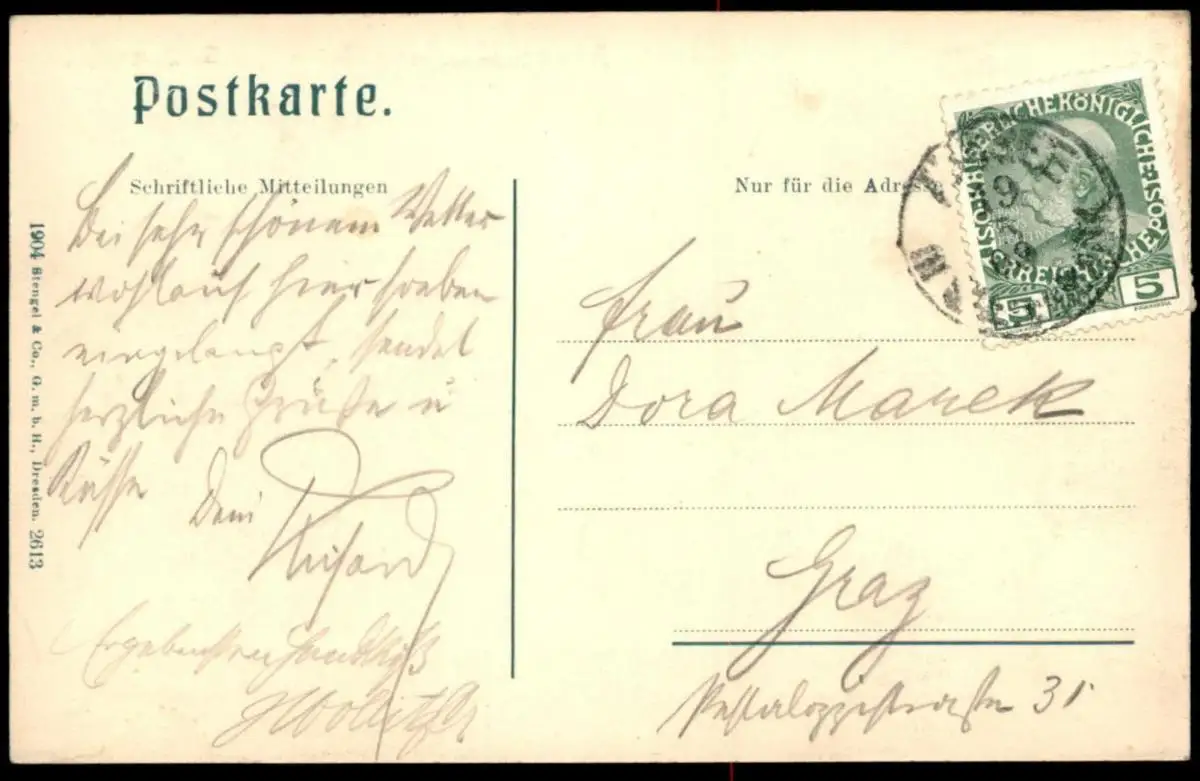 Postkarte.
Schriftliche Mitteilungen
Nur für die Adresse
Bei sehr schönem Wetter
wohlauf hier soeben
eingelangt, sendet
herzliche Grüße u
Küsse Dein
Richard
Ergebensten Handkuß
Frau
Dora Marek
Graz
Pestalozzistrasse 31
KAISERLICHEKÖNIGLICHE
ÖSTERREICHISCHE POST
5 5
1904 Stengel & Co., G. m. b. H., Dresden. 2613